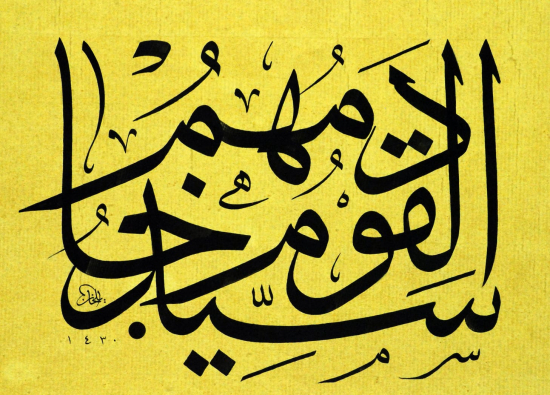 سَيِّدُ الْقَوْمِ خَادِمُهُمْ
١٤٣٠